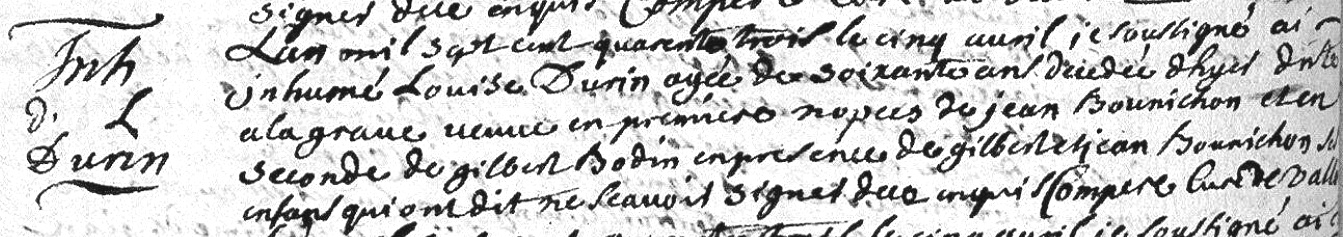 signer dece enquis Compere
Inh
d. L
Durin
Lan mil sept cent quarente trois le cinq auril ie soussigné ai
inhumé Louise Durin agée de soixante ans decedée dhyer
a la graue veuue en premiere nopces de jean Bounichon et en
seconde de gilbert Bodin en presence de gilbert et jean Bounichon
enfans qui ont dit ne scauoir signer dece enquis Compere curé de
le cinq auril ie soussigné ai